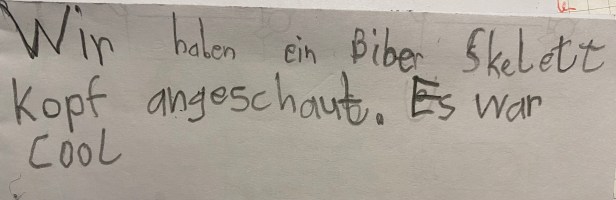 Wir haben ein Biber Skelett
Kopf angeschaut. Es war
COOL